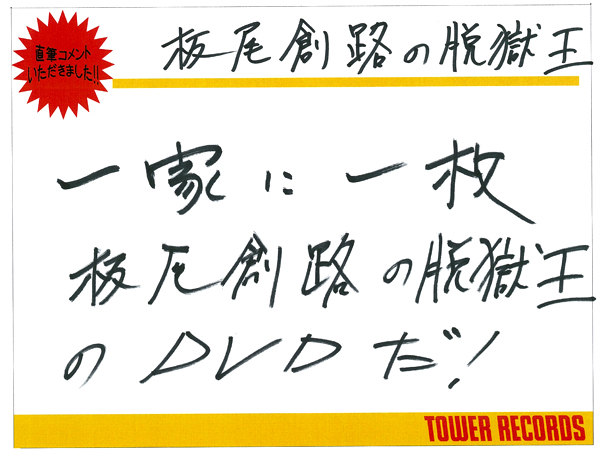 直筆コメント
いただきました!!
板尾創路の脱獄王
一家に一枚
板尾創路の脱獄王
のDVDだ!
TOWER RECORDS